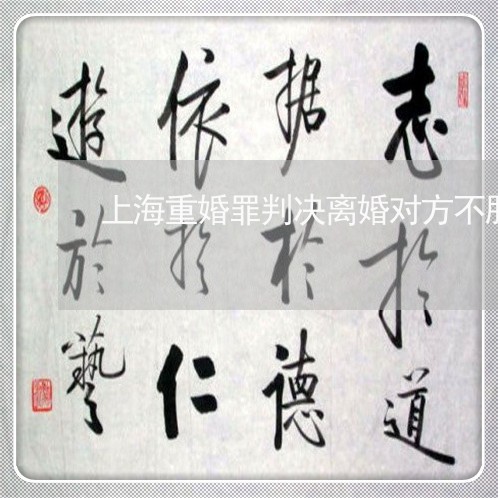 志於道
据於德
依於仁
遊於藝
上海重婚罪判决离婚对方不